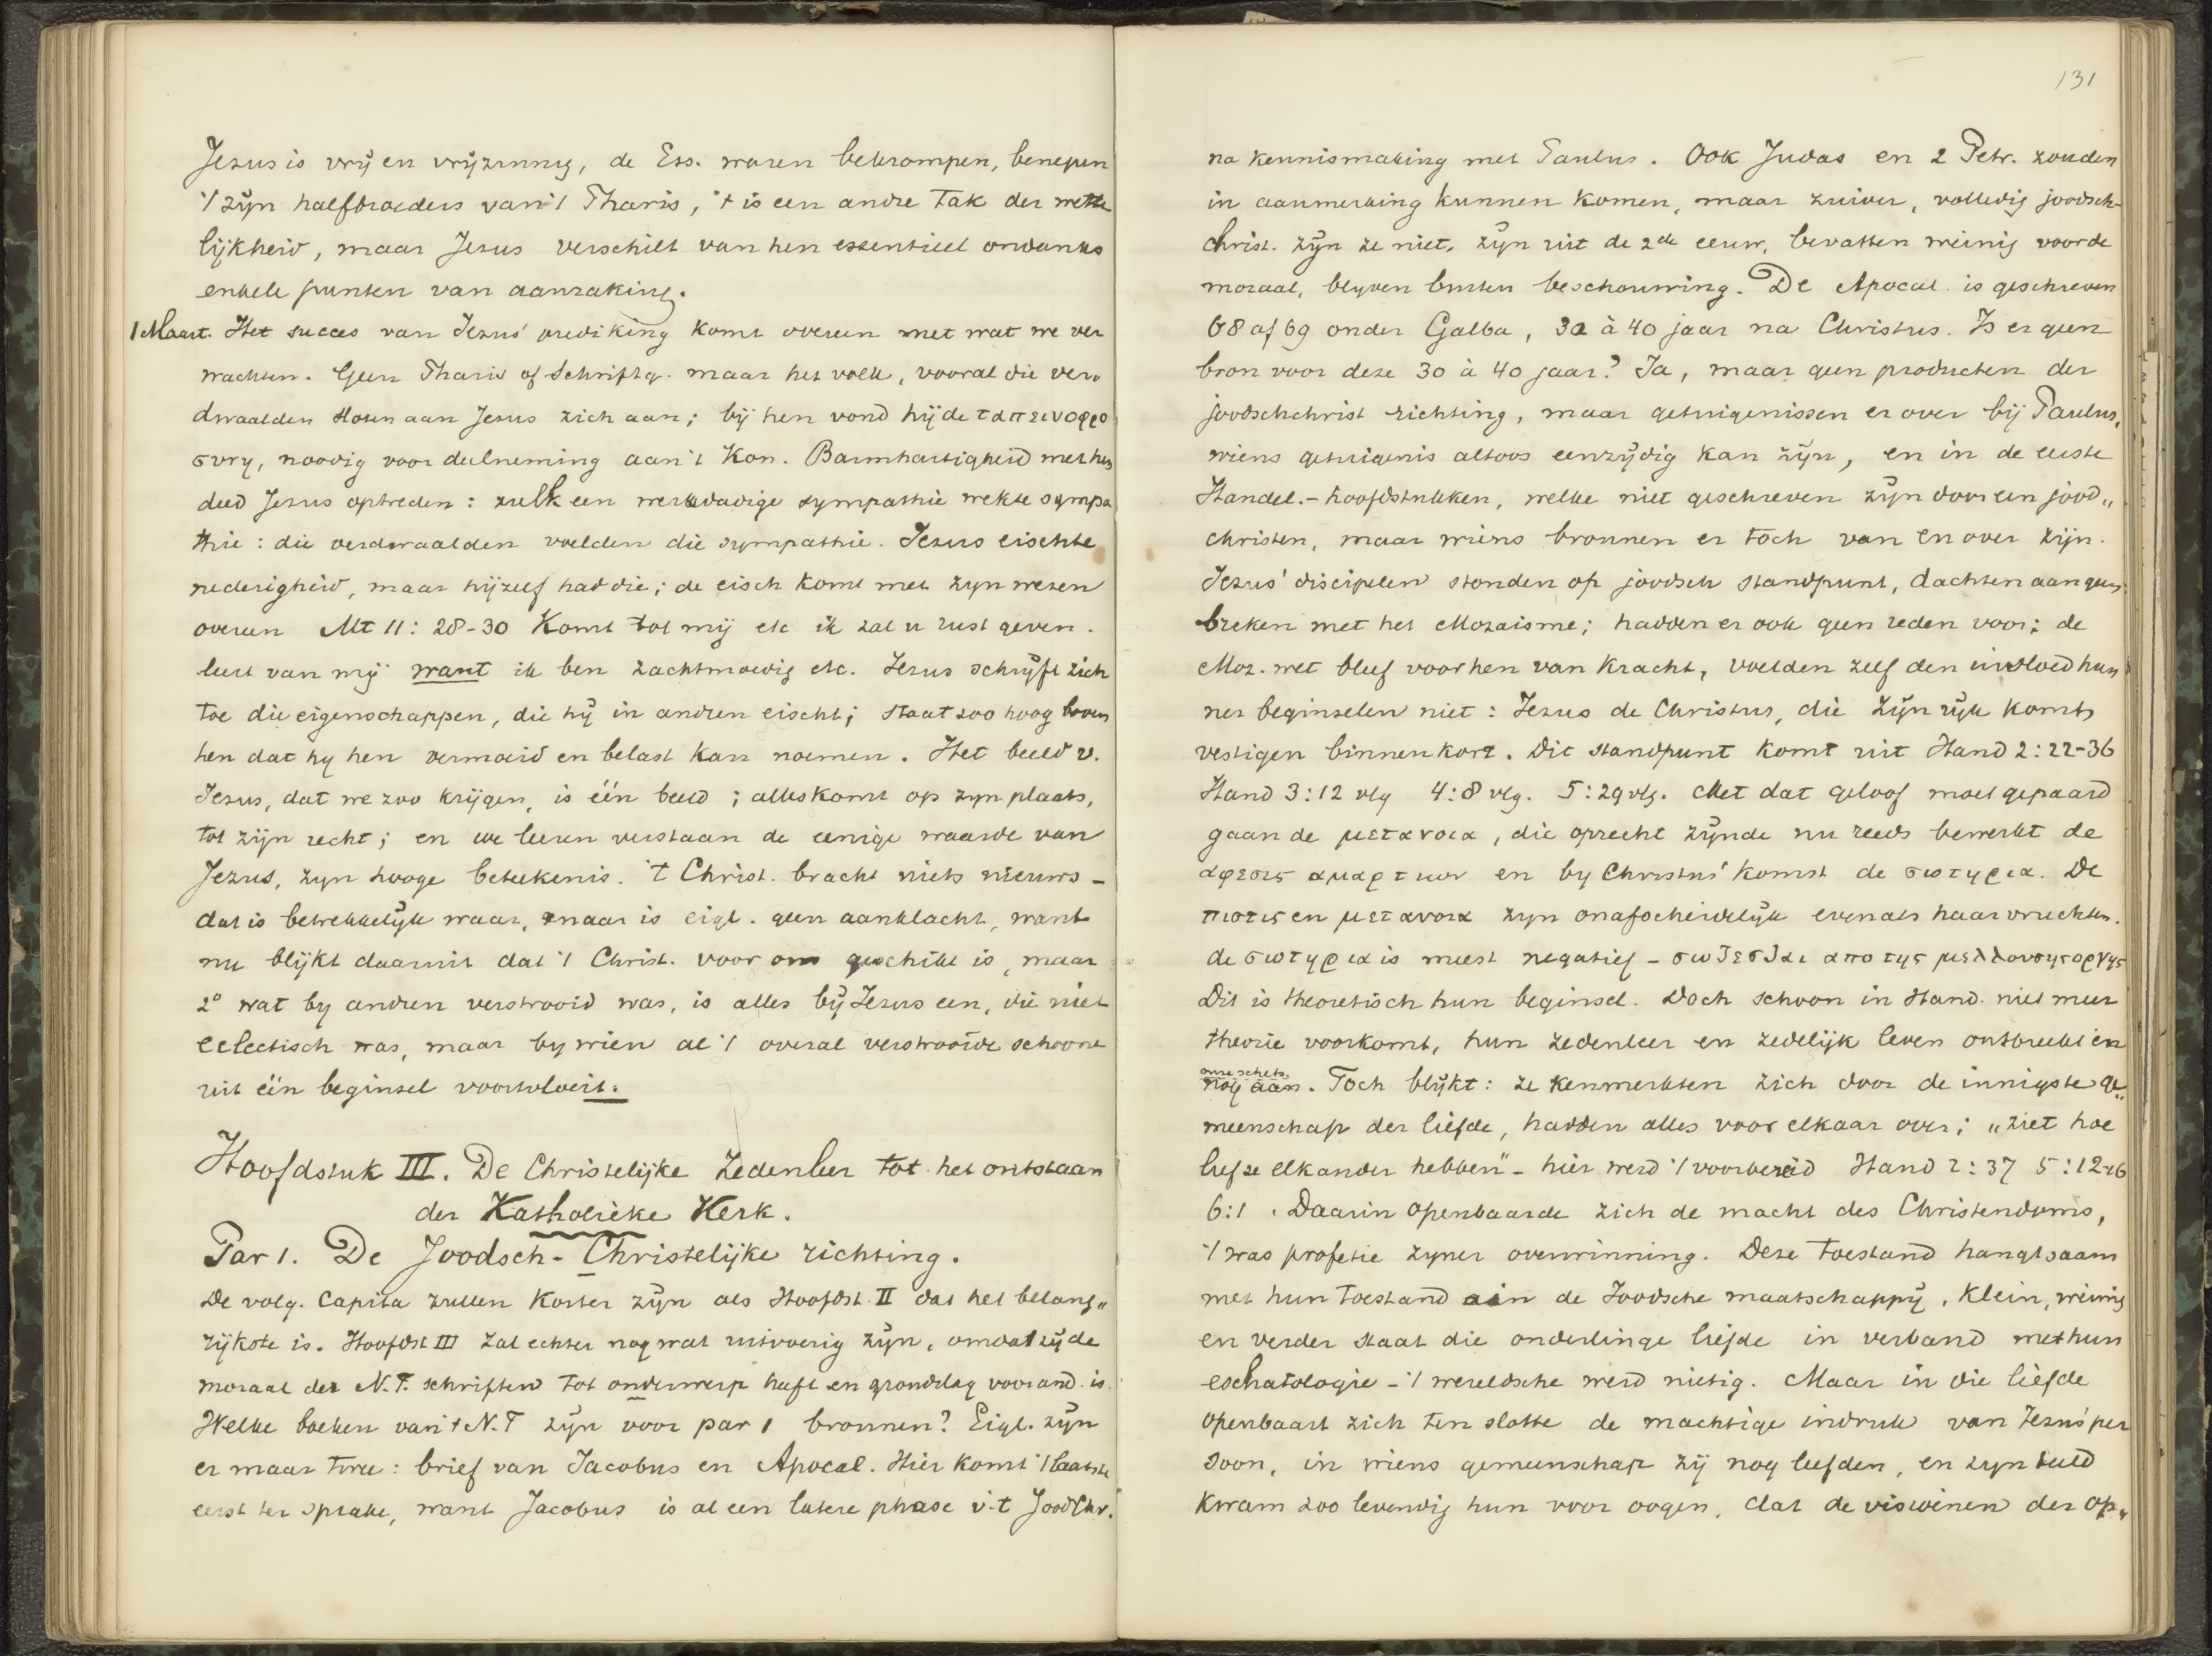 Jezus is vrij en vrijzinnig, de Ess. waren bekrompen, benepen
't zijn halfbroeders van 't Pharis, 't is een andre tak der wette
lijkheid, maar Jezus verschilt van hen essentieel ondanks
enkele punten van aanraking.
1 Maart. Het succes van Jezus' prediking komt overeen met wat we ver
wachten. Geen Pharis of Schriftg. maar het volk, vooral die ver„
dwaalden sloten aan Jezus zich aan; bij hen vond hij de ταπεινοφρο
συνη, noodig voor deelneming aan 't Kon. Barmhartigheid met hen
deed Jezus optreden: zulk een werkdadige sympathie wekte sympa
thie: die verdwaalden voelden die sympathie. Jezus eischte
nederigheid, maar hijzelf had die; de eisch komt met zijn wezen
overeen Mt 11: 28-30 Komt tot mij etc ik zal u rust geven.
leert van mij want ik ben zachtmoedig etc. Jezus schrijft zich
toe die eigenschappen, die hij in andren eischt; staat zoo hoog boven
hen dat hij hen vermoeid en belast kan noemen. Het beeld v.
Jezus, dat we zoo krijgen, is één beeld; alles komt op zijn plaats,
tot zijn recht; en we leeren verstaan de eenige waarde van
Jezus, zijn hooge beteekenis. 't Christ. bracht niets nieuws –
dat is betrekkelijk waar, maar is eigl. geen aanklacht, want
nu blijkt daaruit dat 't Christ. voor ons geschikt is, maar
2° wat bij andren verstrooid was, is alles bij Jezus een, die niet
eclectisch was, maar bij wien al 't overal verstrooide schoone
uit één beginsel voortvloeit.
Hoofdstuk III. De Christelijke Zedenleer tot het ontstaan
der Katholieke Kerk.
Par 1. De Joodsch-Christelijke richting.
De volg. Capita zullen korter zijn als Hoofdst. II dat het belang„
rijkste is. Hoofdst III zal echter nog wat uitvoerig zijn, omdat hij de
moraal der N.T. schriften tot onderwerp heeft en grondslag voor and. is.
Welke boeken van 't N.T zijn voor par 1 bronnen? Eigl. zijn
er maar twee: brief van Jacobus en Apocal. Hier komt 't laatste
eerst ter sprake, want Jacobus is al een latere phase v. 't JoodChr.
131
na kennismaking met Paulus. Ook Judas en 2 Petr. zouden
in aanmerking kunnen komen, maar zuiver, volledig joodsch-
christ. zijn ze niet, zijn uit de 2de eeuw, bevatten weinig voor de
moraal, blijven buiten beschouwing. De Apocal. is geschreven
68 of 69 onder Galba, 30 à 40 jaar na Christus. Is er geen
bron voor deze 30 à 40 jaar? Ja, maar geen producten der
joodschchrist richting, maar getuigenissen er over bij Paulus,
wiens getuigenis altoos eenzijdig kan zijn, en in de eerste
Handel.-hoofdstukken, welke niet geschreven zijn door een jood„
christen, maar wiens bronnen er toch van en over zijn.
Jezus' discipelen stonden op joodsch standpunt, dachten aan geen
breken met het Mozaisme; hadden er ook geen reden voor; de
Moz. wet bleef voor hen van kracht, voelden zelf den invloed hun
ner beginselen niet: Jezus de Christus, die zijn rijk komt
vestigen binnenkort. Dit standpunt komt uit Hand 2: 22-36
Hand 3:12 vlg 4:8 vlg. 5:29 vlg. Met dat geloof moet gepaard
gaan de μετανοια, die oprecht zijnde nu reeds bewerkt de
αφεσις αμαρτιων en bij Christus' komst de σωτηρια. De
πιστις en μετανοια zijn onafscheidelijk evenals haar vruchten.
de σωτηρια is meest negatief – σωθεσθαι απο της μελλουσης οργης
Dit is theoretisch hun beginsel. Doch schoon in Hand. niet meer
theorie voorkomt, hun zedenleer en zedelijk leven ontbreekt en
onze schets
nog aan. Toch blijkt: ze kenmerkten zich door de innigste ge„
meenschap der liefde, hadden alles voor elkaar over; „ziet hoe
liefze elkander hebben" – hier werd 't voorbereid Hand 2: 37 5:12-16
6:1. Daarin openbaarde zich de macht des Christendoms,
't was profetie zijner overwinning. Deze toestand hangt saam
met hun toestand in de Joodsche maatschappij, klein, weinig
en verder staat die onderlinge liefde in verband met hun
eschatologie – 't wereldsche werd nietig. Maar in die liefde
openbaart zich ten slotte de machtige indruk van Jezus' per
soon, in wiens gemeenschap zij nog leefden, en zijn beeld
kwam zoo levendig hun voor oogen, dat de visioenen der op„